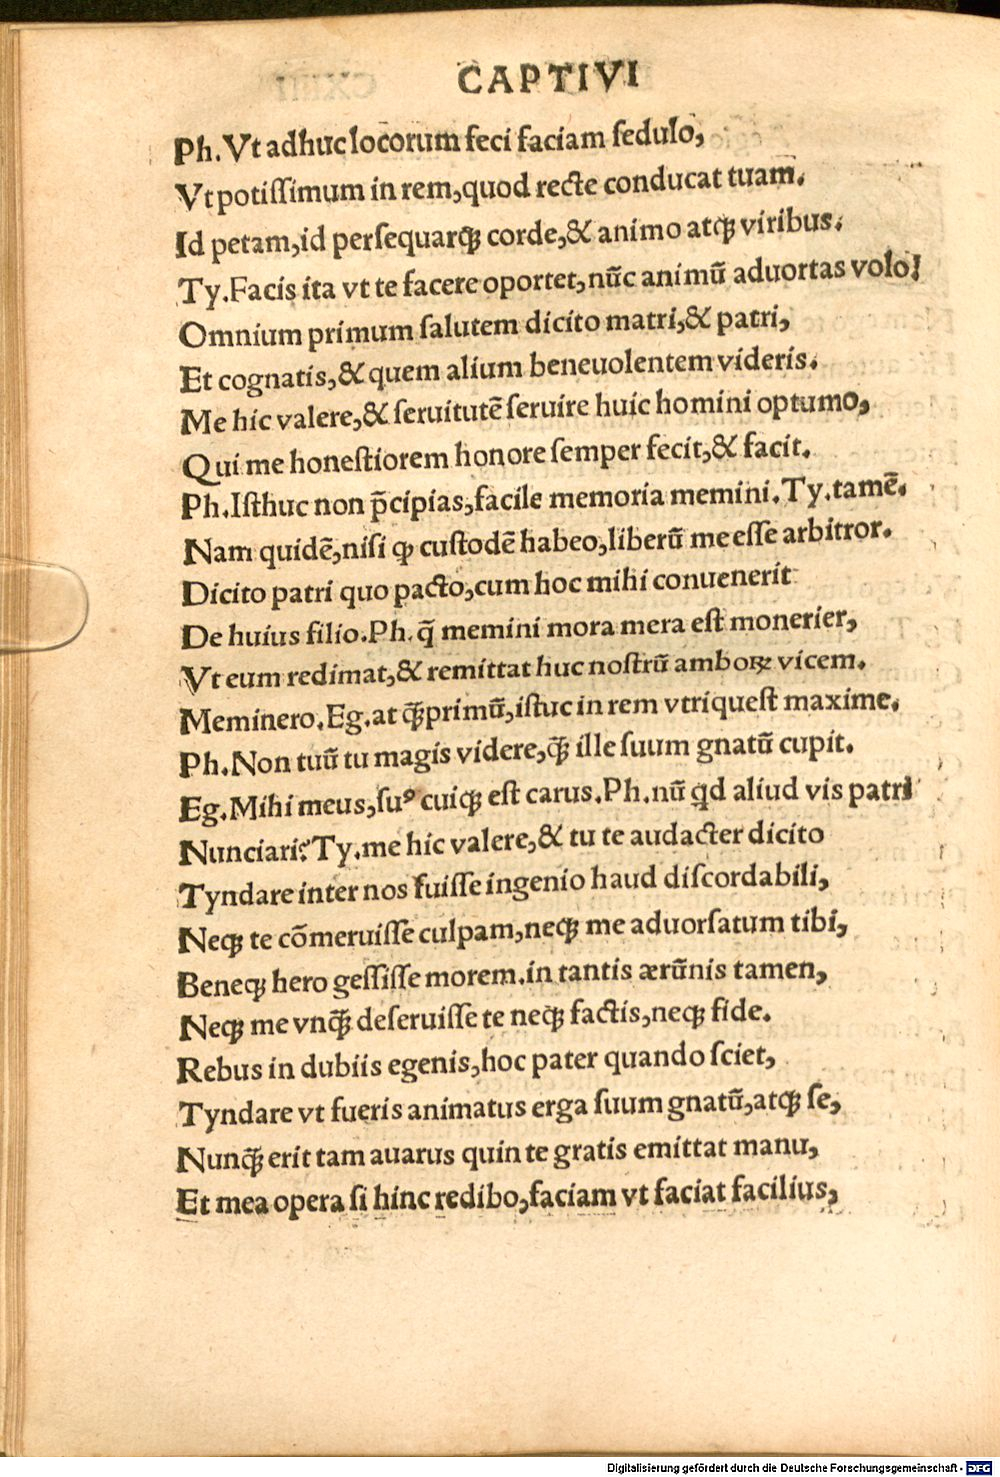 CAPTIVI
Ph.Vt adhuc locorum feci faciam ſedulo,
Vt potiſſimum in rem,quod recte conducat tuam.
Id petam,id perſequarq̃ corde,& animo atq̃ viribus.
Ty.Facis ita vt te facere oportet,nũc animũ aduortas volo!
Omnium primum ſalutem dicito matri,& patri,
Et cognatis,& quem alium beneuolentem videris.
Me hic valere,& ſeruitutẽ ſeruire huic homini optumo,
Qui me honeſtiorem honore ſemper fecit,& facit.
Ph.Iſthuc non p̃cipias,facile memoria memini.Ty.tamẽ.
Nam quidẽ,niſi ꝙ cuſtodẽ habeo,liberũ me eſſe arbitror.
Dicito patri quo pacto,cum hoc mihi conuenerit
De huius filio.Ph.q̃ memini mora mera eſt monerier,
Vt eum redimat,& remittat huc noſtrũ amboꝝ vicem.
Meminero.Eg.at q̃primũ,iſtuc in rem vtriqueſt maxime.
Ph.Non tuũ tu magis videre,q̃ ille ſuum gnatũ cupit.
Eg.Mihi meus,ſuꝰ cuiqꝫ eſt carus.Ph.nũ qd aliud vis patri
Nunciari?Ty.me hic valere,& tu te audacter dicito
Tyndare inter nos fuiſſe ingenio haud diſcordabili,
Neqꝫ te cõmeruiſſe culpam,neqꝫ me aduorſatum tibi,
Beneqꝫ hero geſſiſſe morem.in tantis ærũnis tamen,
Neqꝫ me vnq̃ deſeruiſſe te neqꝫ factis,neqꝫ fide.
Rebus in dubiis egenis,hoc pater quando ſciet,
Tyndare vt fueris animatus erga ſuum gnatũ,atqꝫ ſe,
Nunq̃ erit tam auarus quin te gratis emittat manu,
Et mea opera ſi hinc redibo,faciam vt faciat facilius,
Digitalisierung gefördert durch die Deutsche Forschungsgemeinschaft - DFG